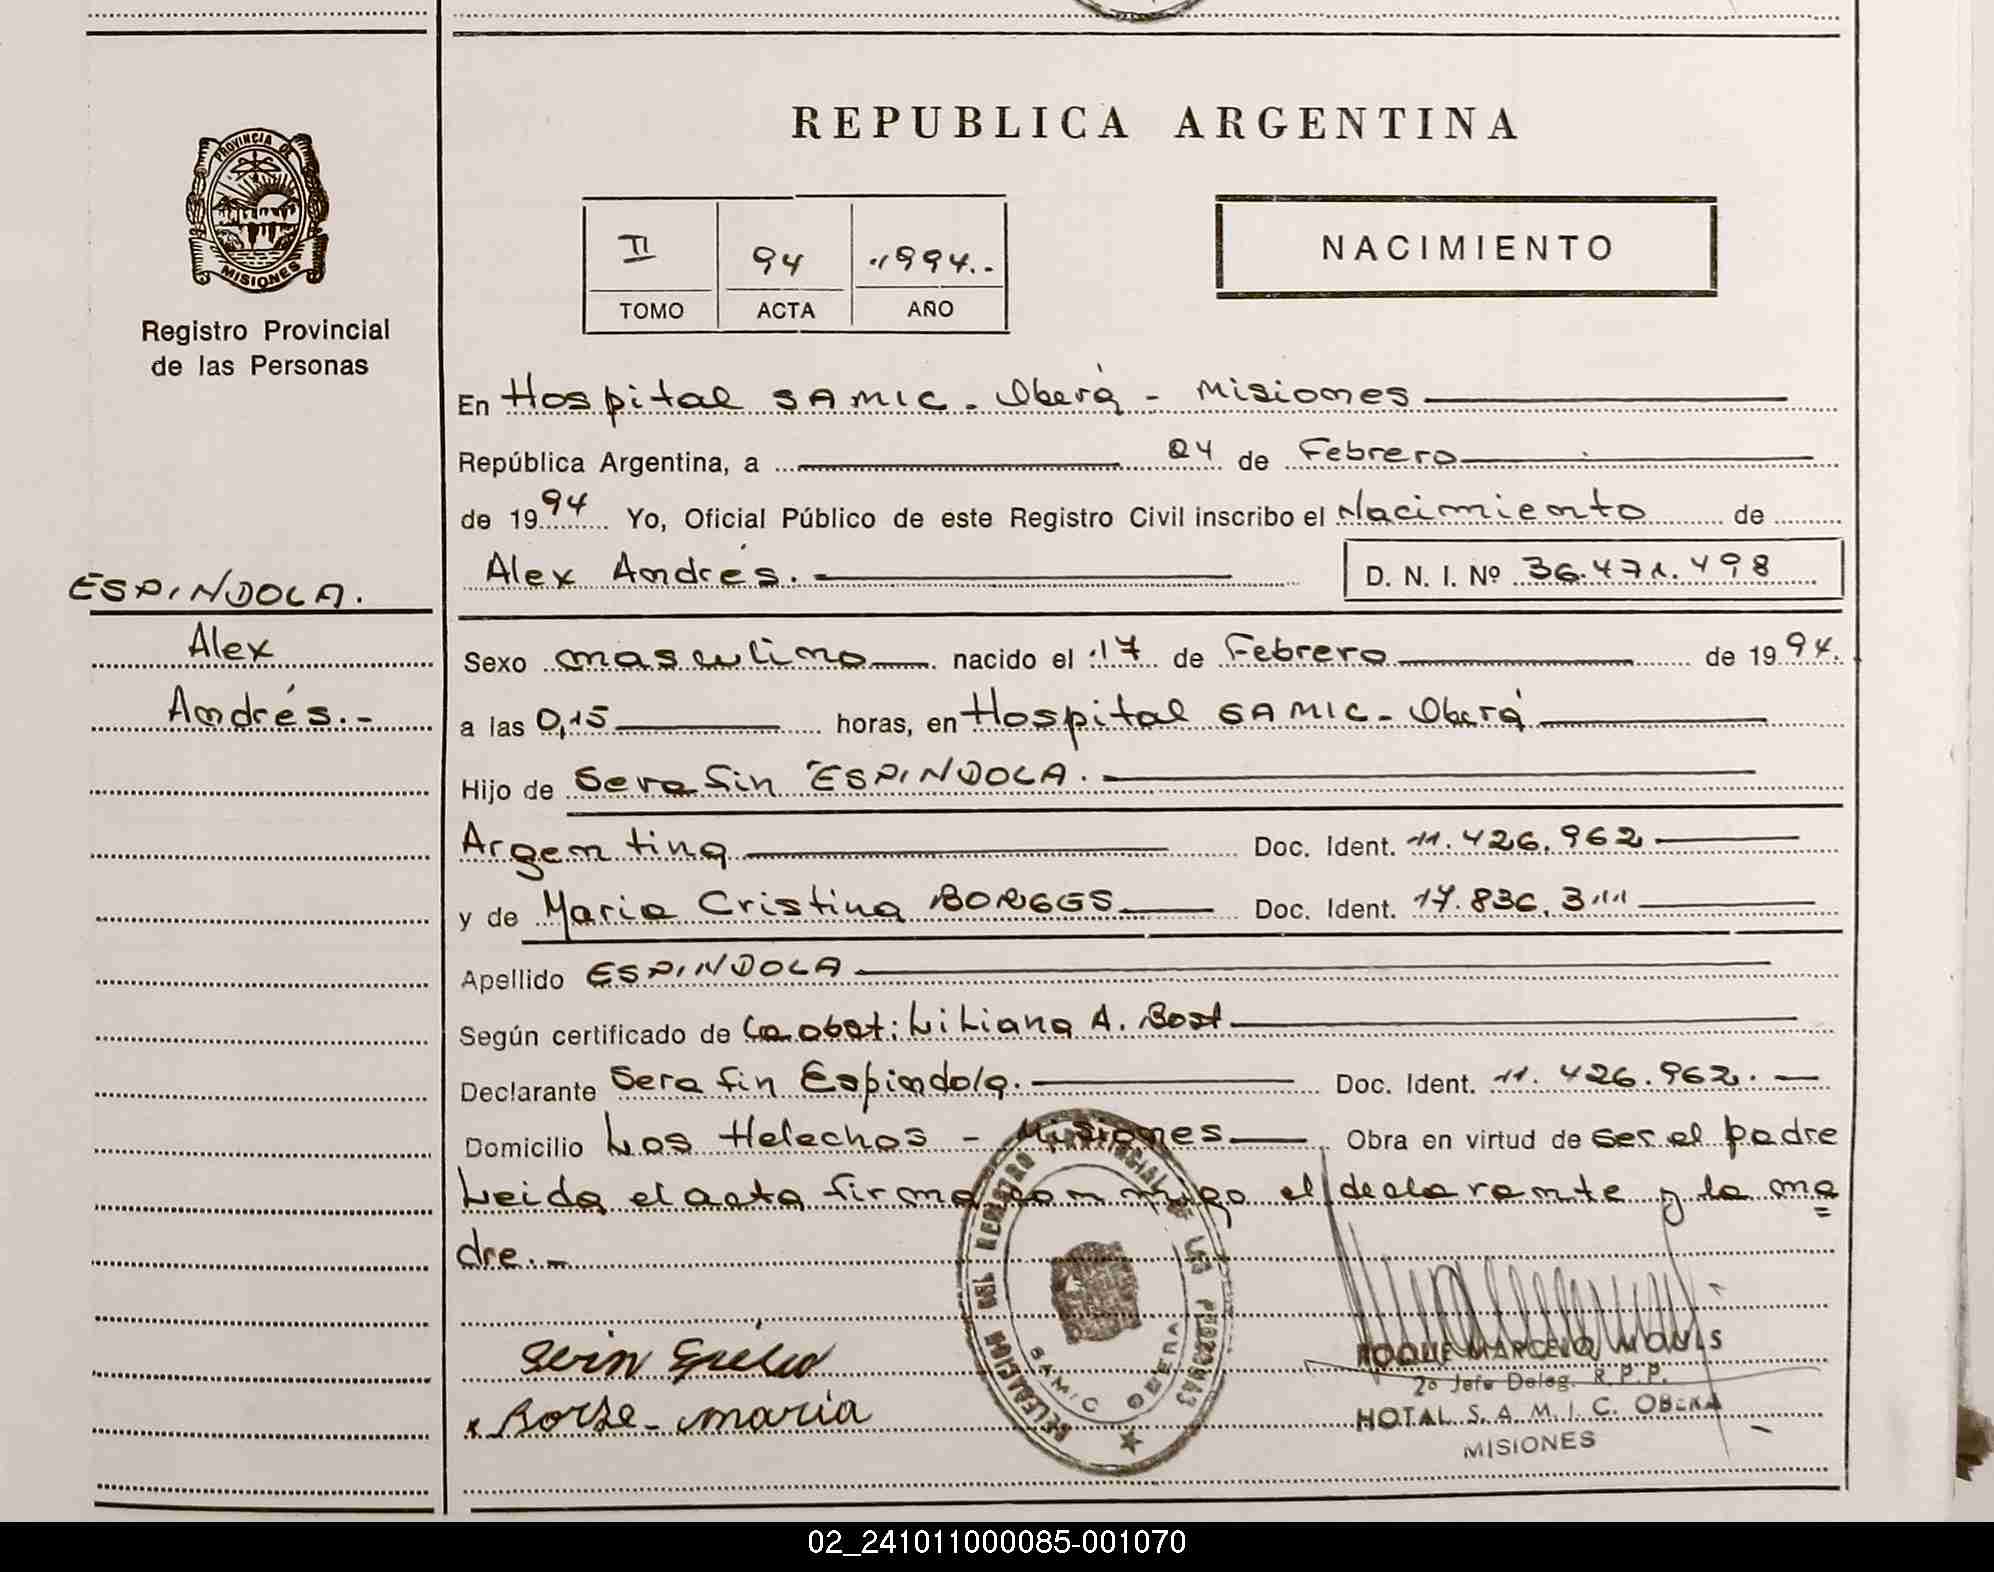 REPUBLICA ARGENTINA
PROVINCIA DE
MISIONES
Registro Provincial
de las Personas
II 94 1994.-
TOMO ACTA AÑO
NACIMIENTO
En Hospital SAMIC - Oberá - Misiones
República Argentina, a 24 de Febrero
de 1994 Yo, Oficial Público de este Registro Civil inscribo el Nacimiento de
Alex Andrés. D. N. I. Nº 36.471.498
ESPINDOLA.
Alex
Andrés.-
Sexo masculino nacido el 17 de Febrero de 1994.
a las 0,15 horas, en Hospital SAMIC - Oberá
Hijo de Serafin ESPINDOLA.
Argentina Doc. Ident. 11.426.962
y de Maria Cristina BORGES Doc. Ident. 17.836.311
Apellido ESPINDOLA
Según certificado de la obst: Liliana A. Bost
Declarante Serafin Espindola. Doc. Ident. 11.426.962.-
Domicilio Los Helechos - Misiones Obra en virtud de ser el padre
Leida el acta firma conmigo el declarante y la ma
dre.-
DELEGACION DEL REGISTRO PROVINCIAL DE LAS PERSONAS
SAMIC OBERA
Borse - maria
ROQUE MARCELO
2º Jefe Deleg. R.P.P.
HOTAL S.A.M.I.C. OBERA
MISIONES
02_241011000085-001070